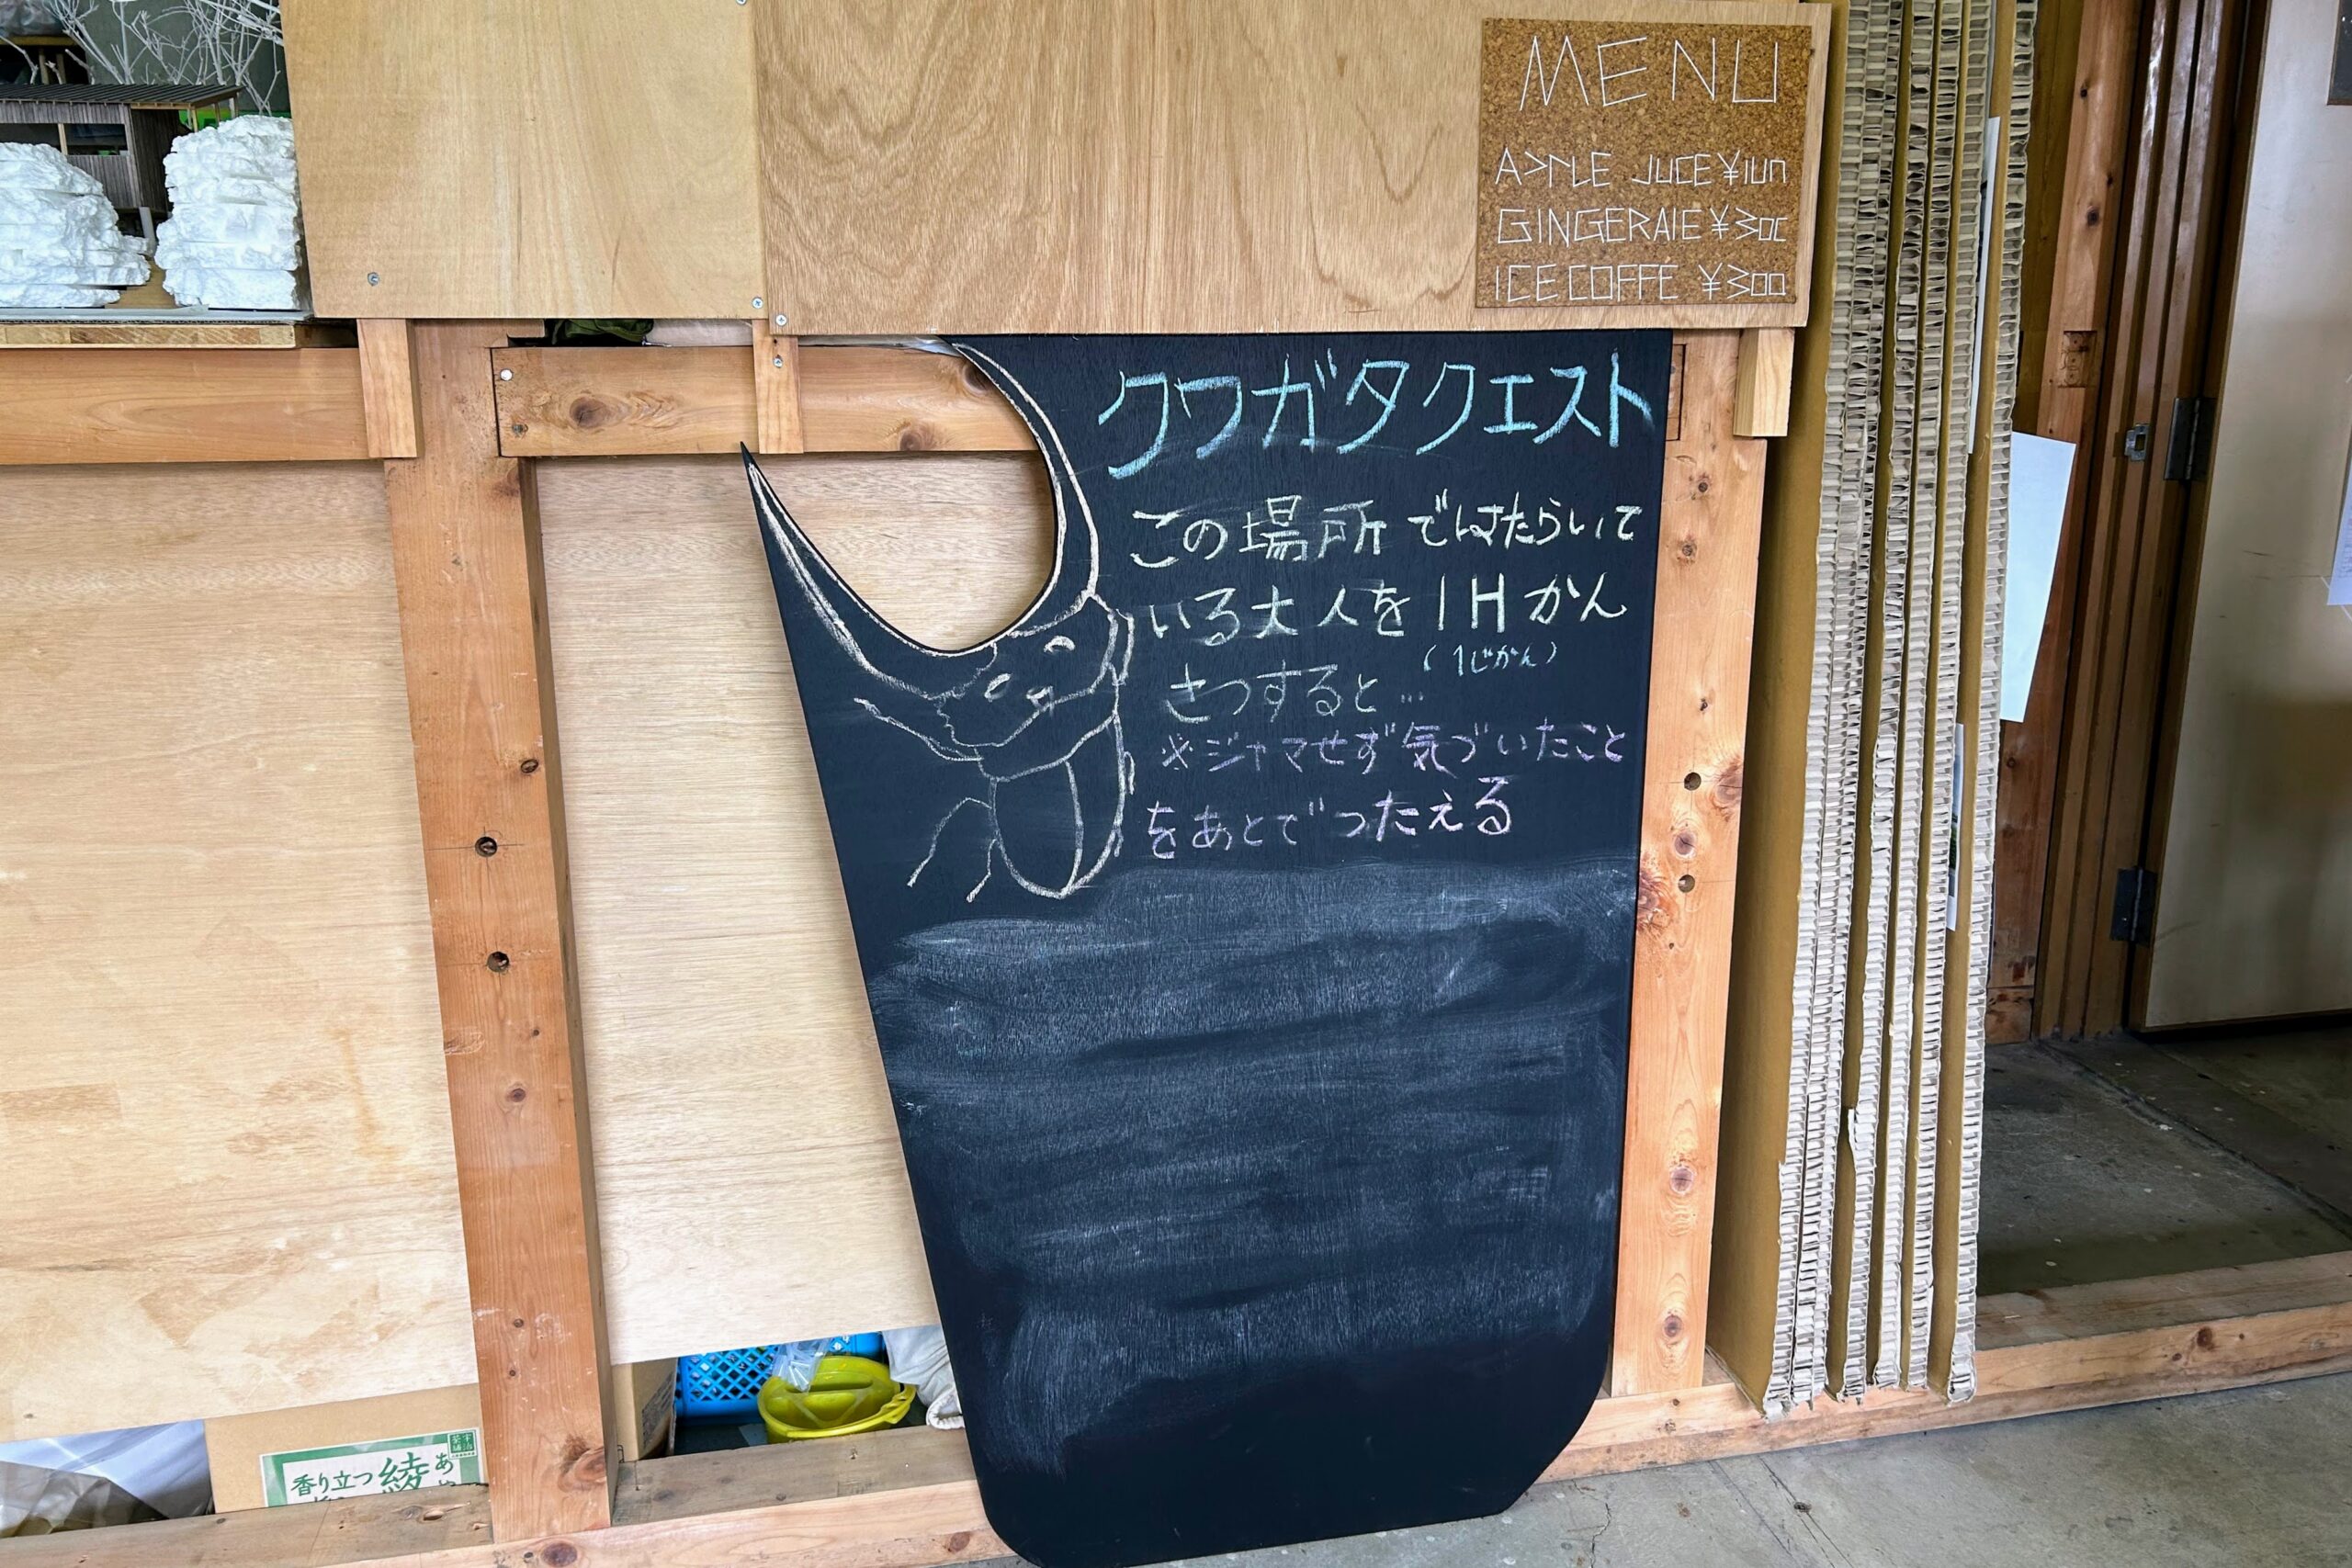 MENU
APPLE JUCE ¥100
GINGERAlE ¥300
ICE COFFE ¥300
クワガタクエスト
この場所ではたらいて
いる大人を1Hかん
(1じかん)
さつすると…
※ジャマせず気づいたこと
をあとでつたえる
香り立つ 綾